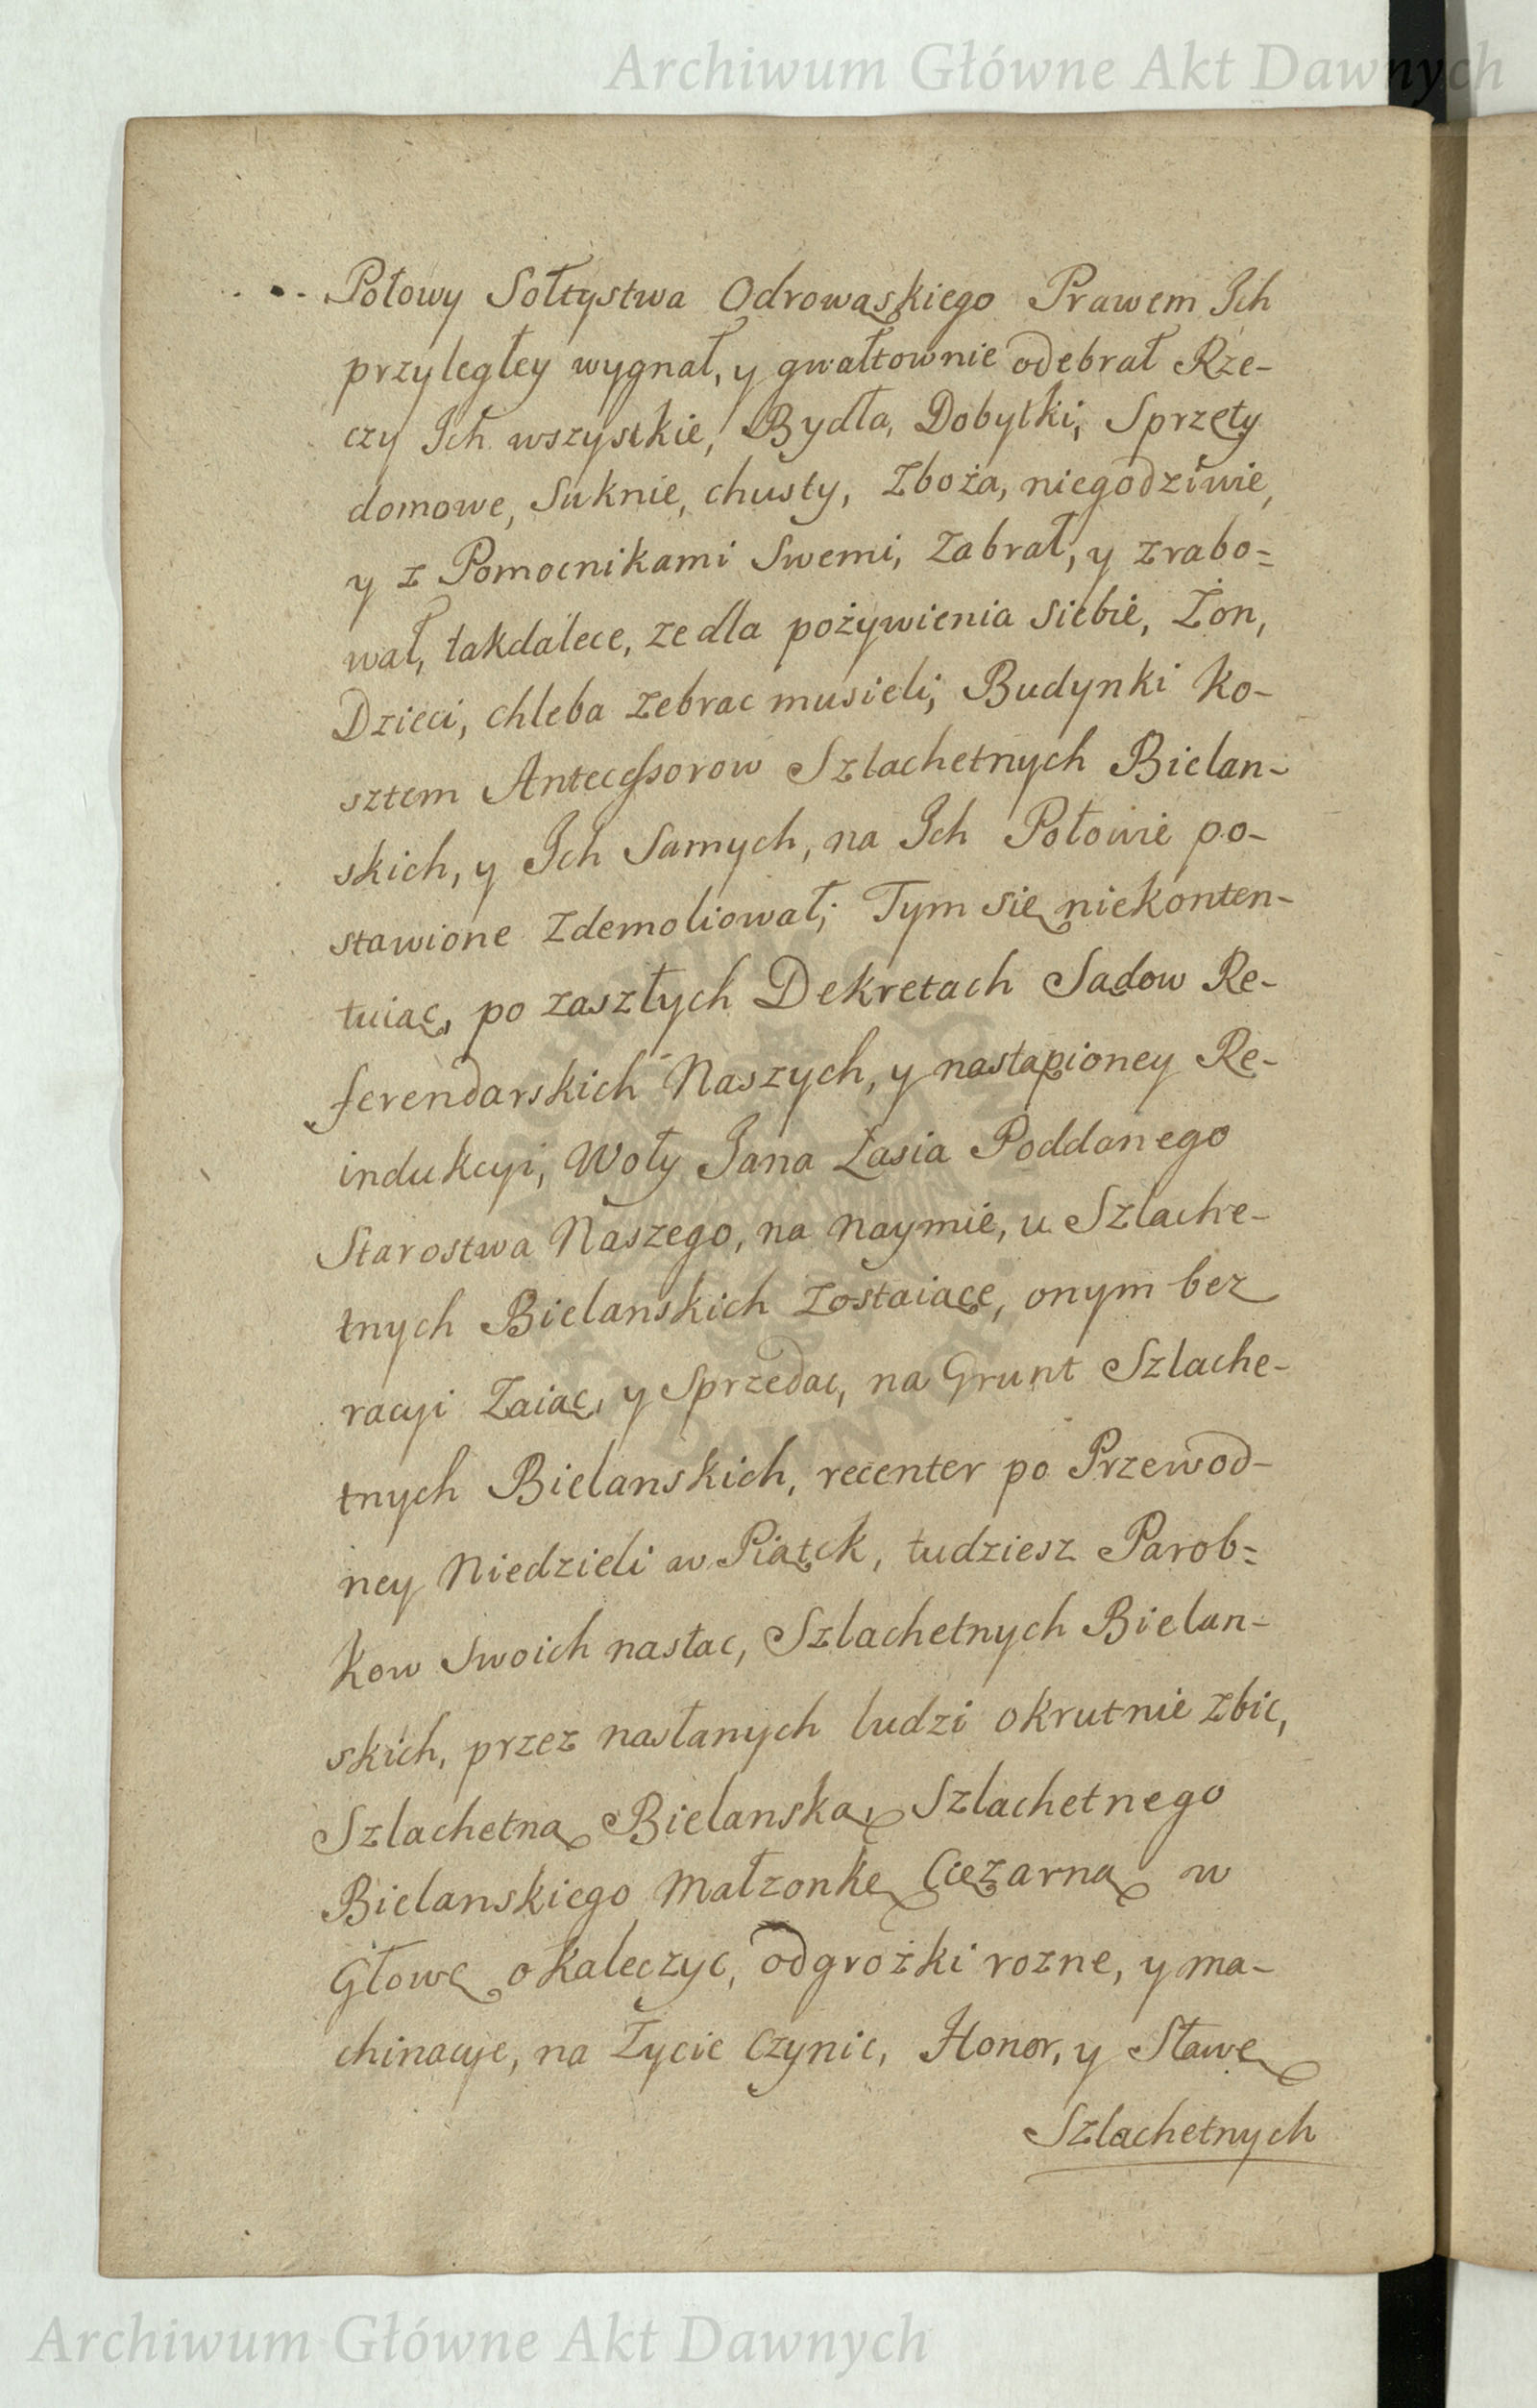 Archiwum Główne Akt Dawnych
Połowy Sołtystwa Odrowąskiego Prawem Ich
przyległey wygnał, y gwałtownie odebrał Rze-
czy Ich wszystkie, Bydła, Dobytki, Sprzęty
domowe, Suknie, chusty, Zboża, niegodziwie,
y z Pomocnikami Swemi, Zabrał, y zrabo=
wał, takdalece, ze dla pożywienia Siebie, Żon,
Dzieci, chleba zebrac musieli; Budynki Ko-
sztem Antecessorow Szlachetnych Bielan-
skich, y Ich Samych, na Ich Połowie po-
stawione Zdemoliował; Tym się niekonten-
tuiąc, po zaszłych Dekretach Sądow Re-
ferendarskich Naszych, y nastąpioney Re-
indukcyi, Woły Jana Łasia Poddanego
Starostwa Naszego, na Naymie, u Szlache-
tnych Bielanskich Zostaiące, onym bez
racyi Zaiąc, y Sprzedac, na Grunt Szlache-
tnych Bielanskich, recenter po Przewod-
ney Niedzieli w Piątek, tudziesz Parob=
kow Swoich nasłac, Szlachetnych Bielan-
skich, przez nasłanych ludzi okrutnie zbic,
Szlachetną Bielanską, Szlachetnego
Bielanskiego Małzonkę Cięzarną w
Głowę okaleczyc, odgrożki rozne, y ma-
chinacye, na Życie Czynic, Honor, y Sławę
Szlachetnych
Archiwum Główne Akt Dawnych